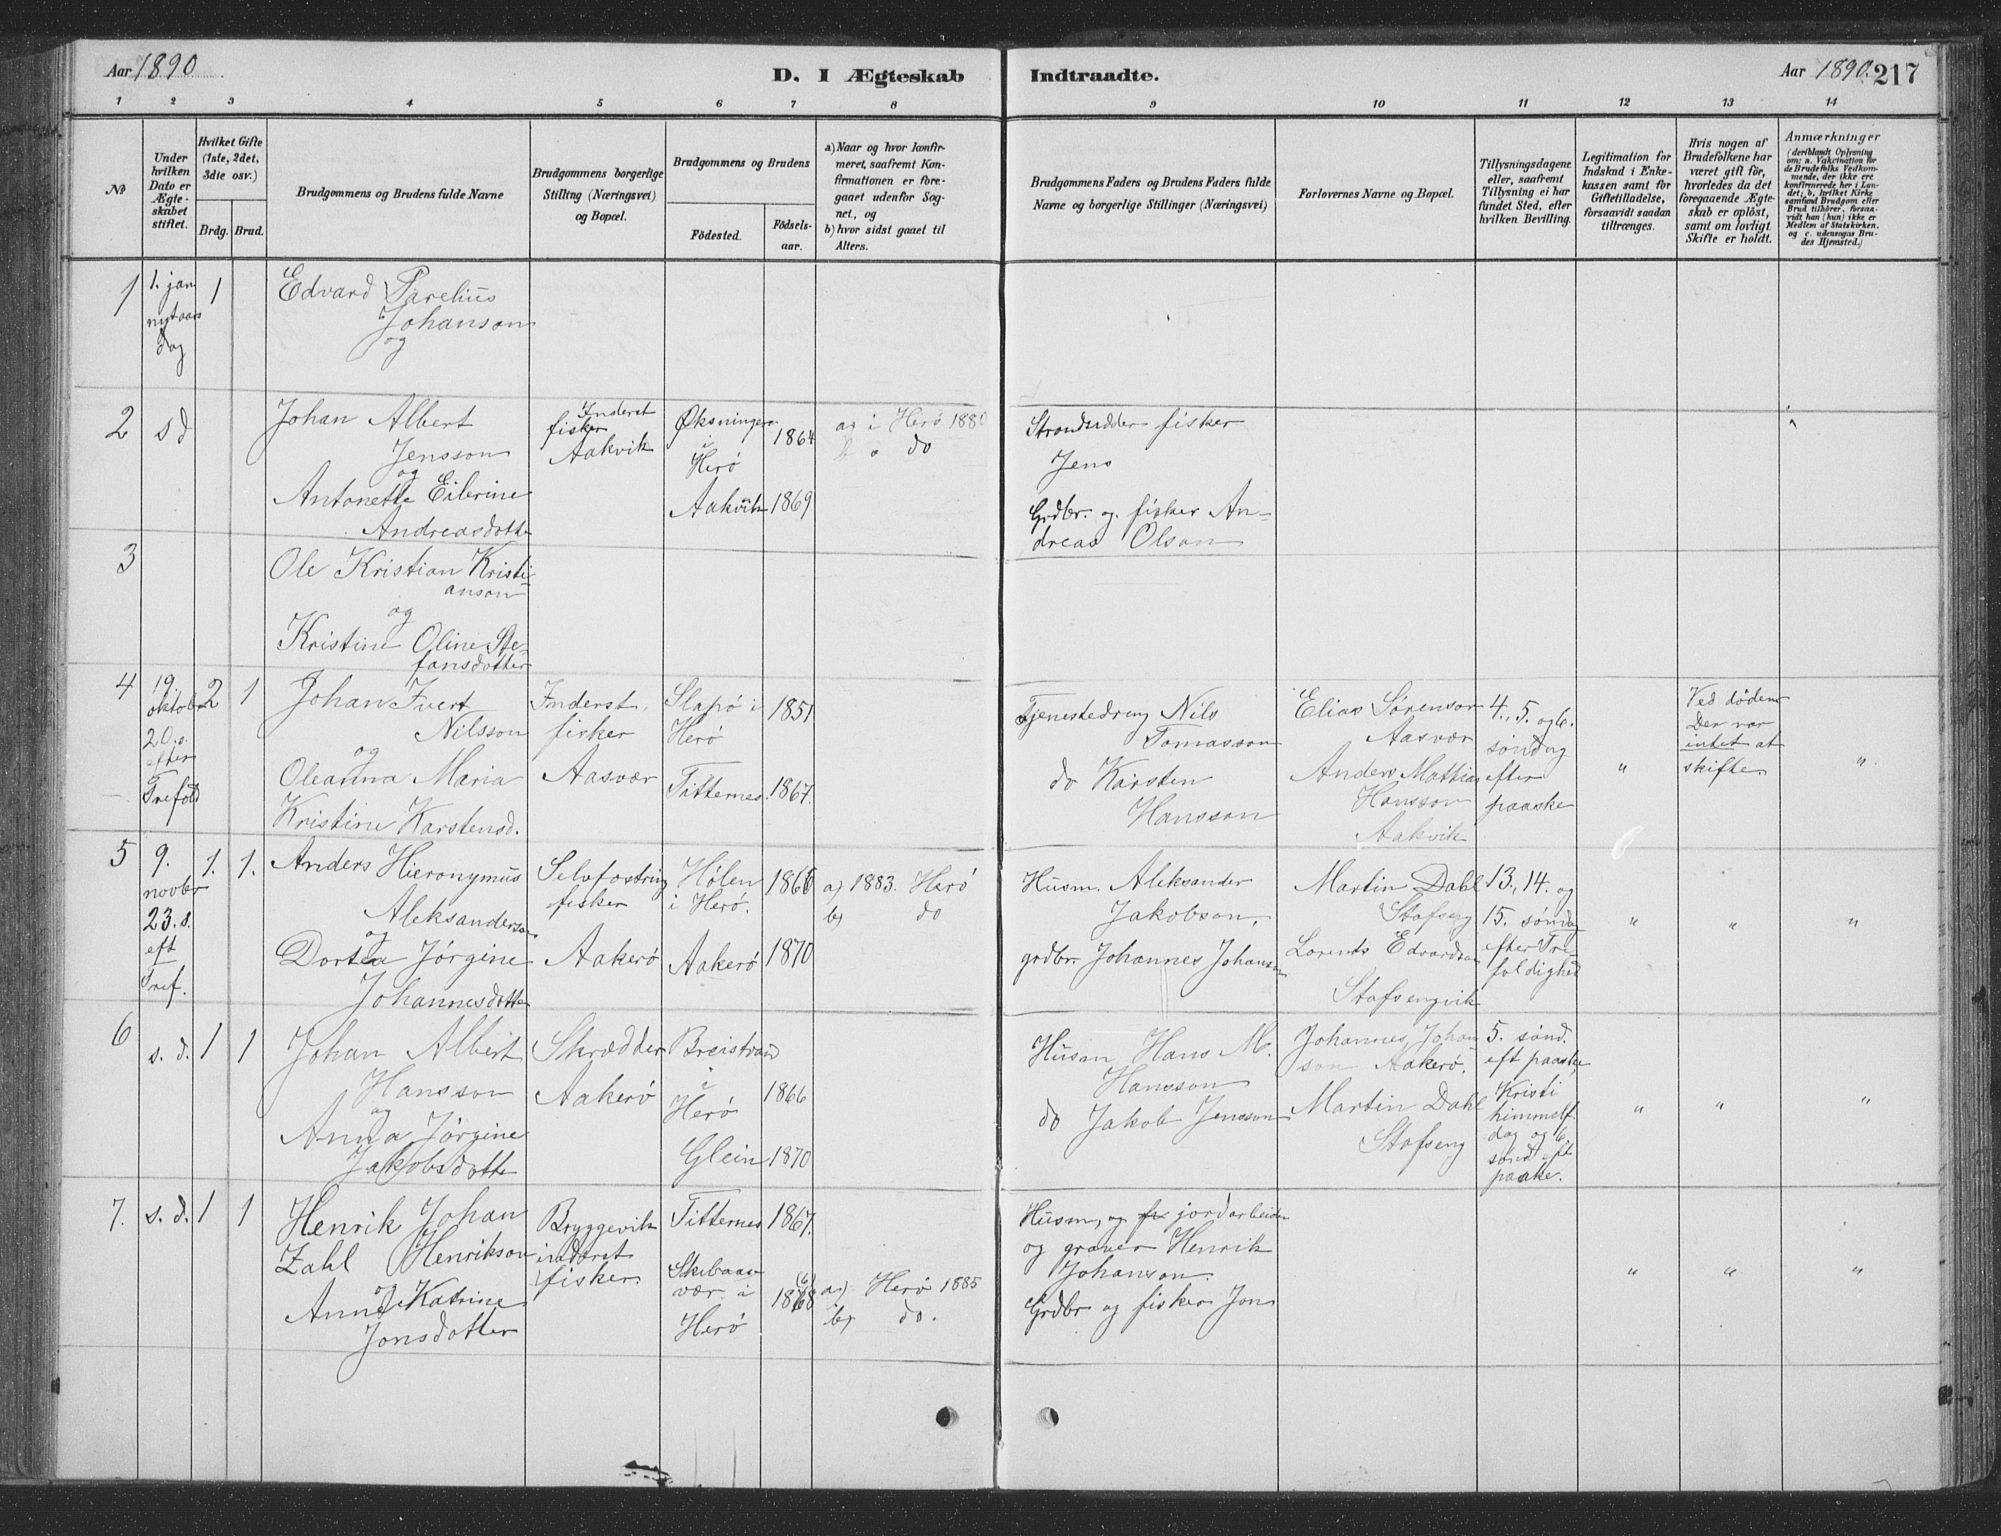 Aar 1890
D. I Ægteskab Indtraadte.
Aar 1890. 217
1 2 3 4 5 6 7 8 9 10 11 12 13 14
No
Under hvilken Dato er Ægteskabet stiftet.
Hvilket Gifte (1ste, 2det, 3die osv.)
Brdg. Brud.
Brudgommens og Brudens fulde Navne
Brudgommens borgerlige Stilling (Næringsvei) og Bopæl.
Brudgommens og Brudens
Födested.
Födselsaar.
a) Naar og hvor konfirmeret, saafremt Konfirmationen er foregaaet udenfor Sognet, og
b) hvor sidst gaaet til Alters.
Brudgommens Faders og Brudens Faders fulde Navne og borgerlige Stillinger (Næringsvei)
Forlovernes Navne og Bopæl.
Tillysningsdagene eller, saafremt Tillysning ei har fundet Sted, efter hvilken Bevilling.
Legitimation for Indskud i Enkekassen samt for Giftetilladelse, forsaavidt saadan tiltrænges.
Hvis nogen af Brudefolkene har været gift för, hvorledes da det foregaaende Ægteskab er oplöst, samt om lovligt Skifte er holdt.
Anmærkninger (deriblandt Oplysning om: a. Vakcination for de Brudefolks Vedkommende, der ikke ere konfirmerede her i Landet; b. hvilket Kirkesamfund Brudgom eller Brud tilhörer, forsaavidt han (hun) ikke er Medlem af Statskirken, og c. udensogns Brudes Hjemsted.)
1
1. jan
nytaars
dag
1
Edvard Parelius
Johanson
og
2
sd
Johan Albert
Jensson
og
Antonette Eilerine
Andreasdotte
Inderst
fisker
Aakvik
Øksningen
i
Herø
Aakvik
1864
1869
a) i Herø 1880
b " do
Strandsidder fisker
Jens
Grdbr. og fisker An-
dreas Olson
3
Ole Kristian Kristi-
anson
og
Kristine Oline Ste-
fansdotter
4
19.
oktober
20. s.
efter
Trefold
2 1
Johan Ivert
Nilsson
og
Oleanna Maria
Kristine Karstensd.
Inderst,
fisker
Aasvær
Slapø i
Herø
Titternes.
1851
1867.
Tjenestedreng Nils
Tomasson
do Karsten
Hansson
Elias Sørenson
Aasvær
Anders Mathias
Hansson
Aakvik
4., 5. og 6.
søndag
efter
paaske
"
Ved døden
Der var
intet at
skifte.
"
5
9.
novbr
23. s.
eft
Tref.
1. 1.
Anders Hieronymus
Aleksanderson
og
Dortea Jørgine
Johannesdotte
Selvfostring
fisker
Aakerø
Hølen
i Herø.
Aakerø
1866
1870
a) 1883. Herø
b) do
Husm. Aleksander
Jakobson,
grdbr. Johannes Johanson
Martin Dahl
Stafseng
Lorents Edvardson
Stafsengvik
13., 14. og
15. søndag
efter Tre-
foldighed
" " "
6
s. d.
1 1
Johan Albert
Hansson
og
Anna Jørgine
Jakobsdotte
Skrædder
Aakerø
Breistrand
i
Herø
Glein
1866
1870
Husm Hans M.
Hansson
do Jakob Jensson
Johannes Johan
son Aakerø.
Martin Dahl
Stafseng
5. sønd.
eft paaske
Kristi
himmelf.
dag og 6
sønd eft
paaske.
" " "
7.
s. d.
1 1
Henrik Johan
Zahl Henrikson
og
Anne Katrine
Jonsdotter
Bryggevik
inderst
fisker
Titternes
Skibaas-
vær i
Herø
1867.
(6)
1868
a) Herø 1885
b) do.
Husm, og jordarbeider
og graver Henrik
Johanson.
Grdbr og fisker Jon
" " "